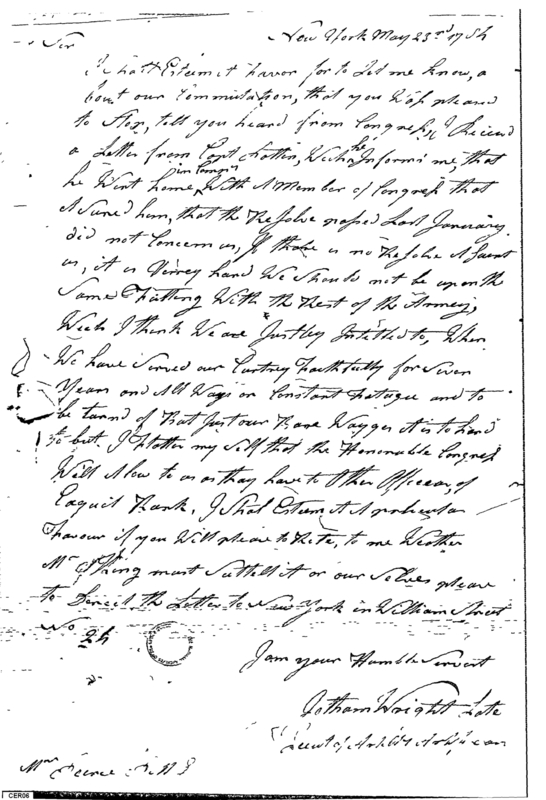 New York May 23rd 1784
Sir
I Shall Esteem it favor for to Let me know, a
bout our Commutation, that you Was pleased
to Stop, tell you heard from Congress, I Received
a Letter from Capt he Informs me, that
he Went home in Compy With A Member of Congress that
Asured him, that the Resolve passed Last January
did not Concern us, If there is no Resolve A
us, it is Verrey hard We Should not be upon the
Same Futting With the Rest of the Armey,
Wich I think We are Justley Intitled to, When
We have Served our Cuntrey Faithfully for Seven
Years and All Ways on Constant Fatugee and to
be turnd of that Just our Bare Wagges it is to hard
to but I flatter my Self that the Honorable Congress
Will Alow to us as thay have to Other Officers, of
Equil Rank, I Shal Esteem it A perticular
Favour if you Will please to Rite, to me Weather
Mr must Suttell it or our Selves please
to Derect the Letter to New York in William Street
No 24
I am your Humble Servant
Jotham Wright Late
Lieut of
Mr Peirce P M G
CER06